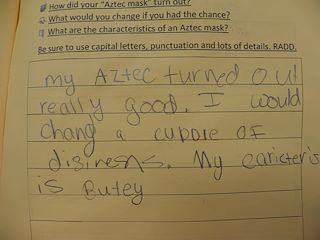 How did your "Aztec mask" turn out?
What would you change if you had the chance?
What are the characteristics of an Aztec mask?
Be sure to use capital letters, punctuation and lots of details. RADD.
my Aztec turned out
really good. I would
chang a cuppre of
disiresns. My caricteris
is Butey